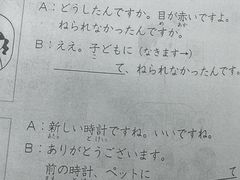 A：どうしたんですか。目が赤いですよ。
ねられなかったんですか。
B：ええ。子どもに（なきます→）
＿＿＿＿＿＿＿て、ねられなかったんです。
A：新しい時計ですね。いいですね。
B：ありがとうございます。
前の時計、ペットに＿＿＿＿＿て